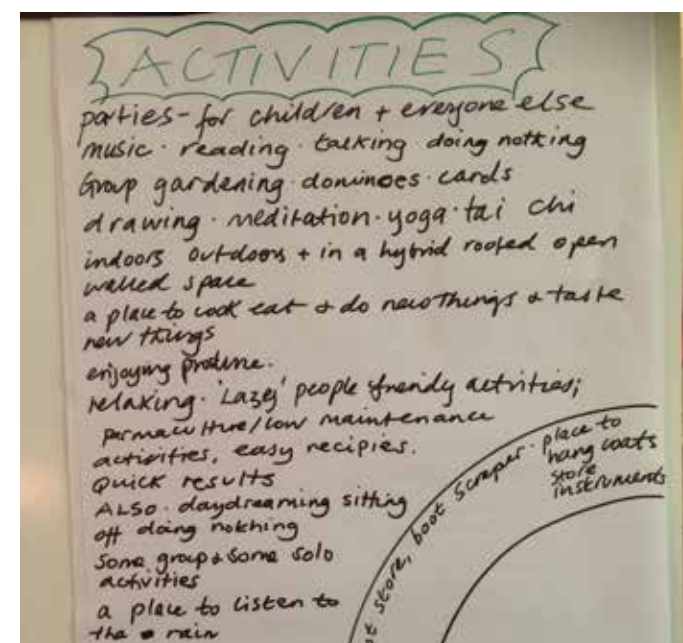 ACTIVITIES
parties - for children + everyone else
music · reading · talking doing nothing
Group gardening · dominoes · cards
drawing · meditation · yoga · tai chi
indoors outdoors + in a hybrid roofed open
walled space
a place to cook eat + do new things + taste
new things
enjoying produce.
relaxing · 'Lazey' people friendly activities;
permaculture/low maintenance
activities, easy recipies.
Quick results
ALSO · daydreaming sitting
off doing nothing
Some group + some solo
activities
a place to listen to
the rain
store, boot scraper · place to
hang coats
store
instruments